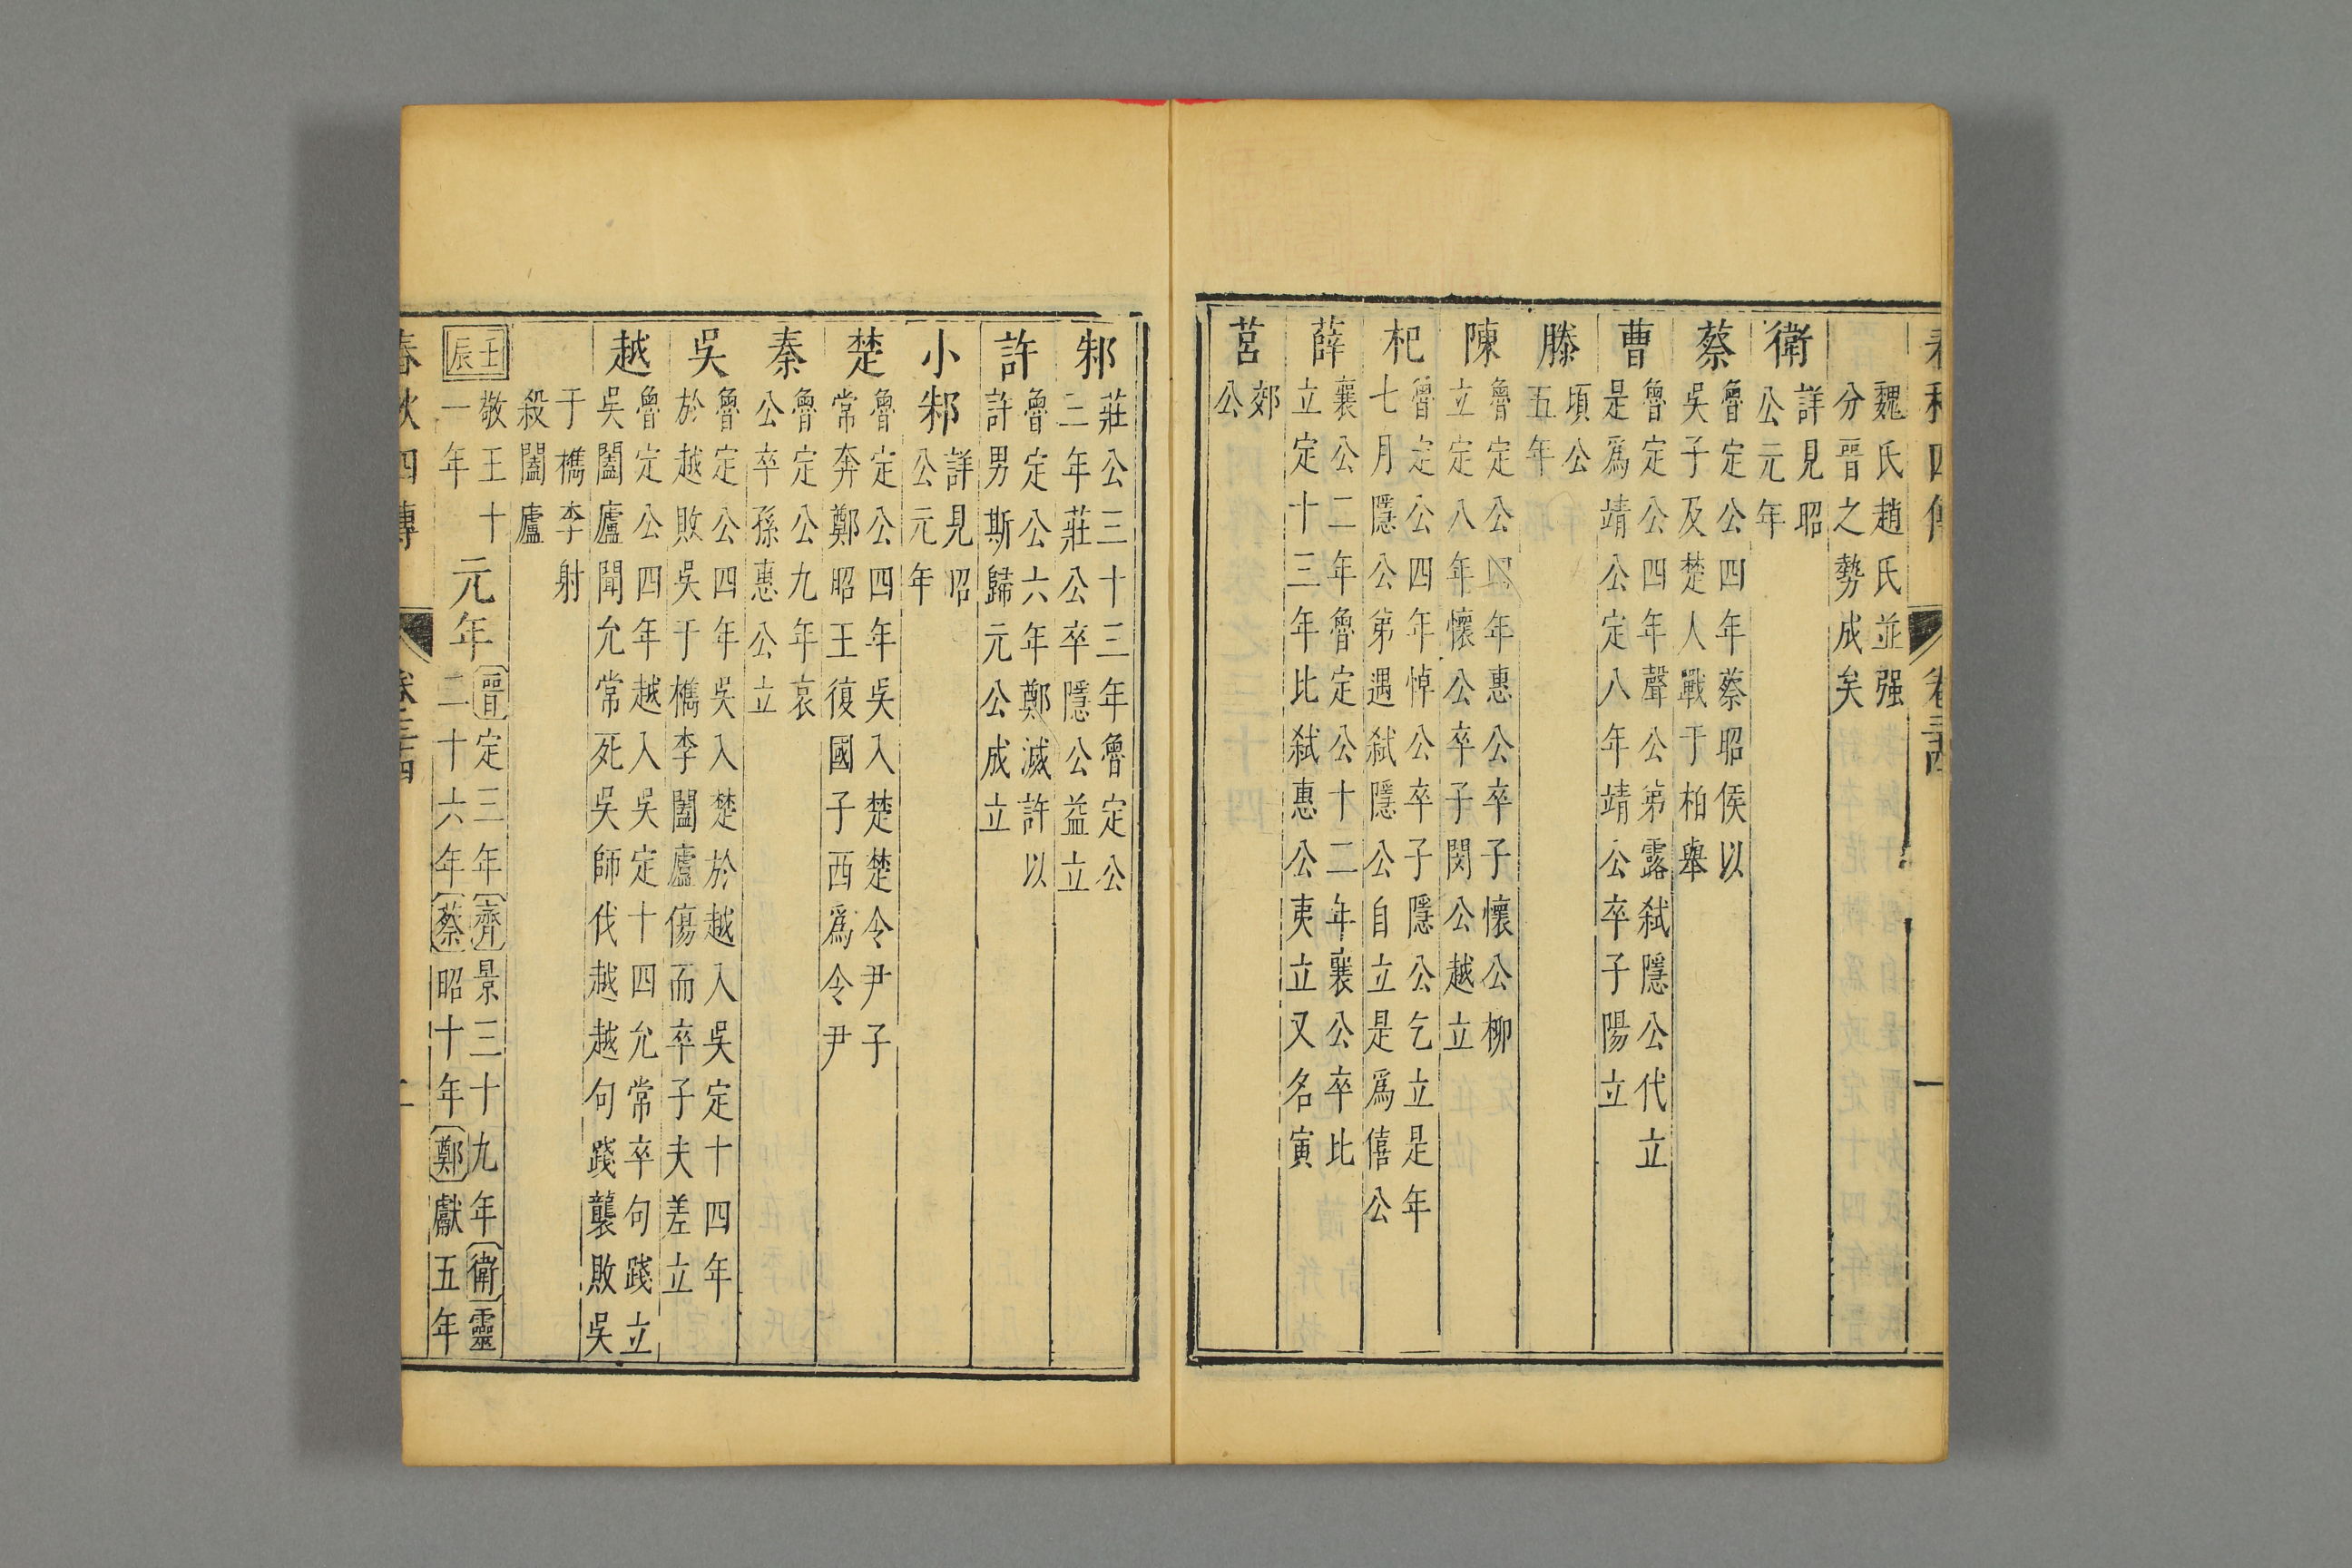 春秋四傳 卷三十四 一
魏氏趙氏並强
分晉之勢成矣
衛 詳見昭
公元年
蔡 魯定公四年蔡昭侯以
吳子及楚人戰于柏舉
曹 魯定公四年聲公弟露弒隱公代立
是爲靖公定八年靖公卒子陽立
滕 頃公
五年
陳 魯定公四年惠公卒子懷公柳
立定八年懷公卒子閔公越立
杞 魯定公四年悼公卒子隱公乞立是年
七月隱公弟遇弒隱公自立是爲僖公
薛 襄公二年魯定公十二年襄公卒比
立定十三年比弒惠公夷立又名寅
莒 郊
公
邾 莊公三十三年魯定公
三年莊公卒隱公益立
許 魯定公六年鄭滅許以
許男斯歸元公成立
小邾 詳見昭
公元年
楚 魯定公四年吳入楚楚令尹子
常奔鄭昭王復國子西爲令尹
秦 魯定公九年哀
公卒孫惠公立
吳 魯定公四年吳入楚於越入吳定十四年
於越敗吳于檇李闔廬傷而卒子夫差立
越 魯定公四年越入吳定十四允常卒句踐立
吳闔廬聞允常死吳師伐越越句踐襲敗吳
于檇李射
殺闔廬
壬辰 敬王十
一年 元年 晉定三年齊景三十九年衛靈
二十六年蔡昭十年鄭獻五年
春秋四傳 卷三十四 二